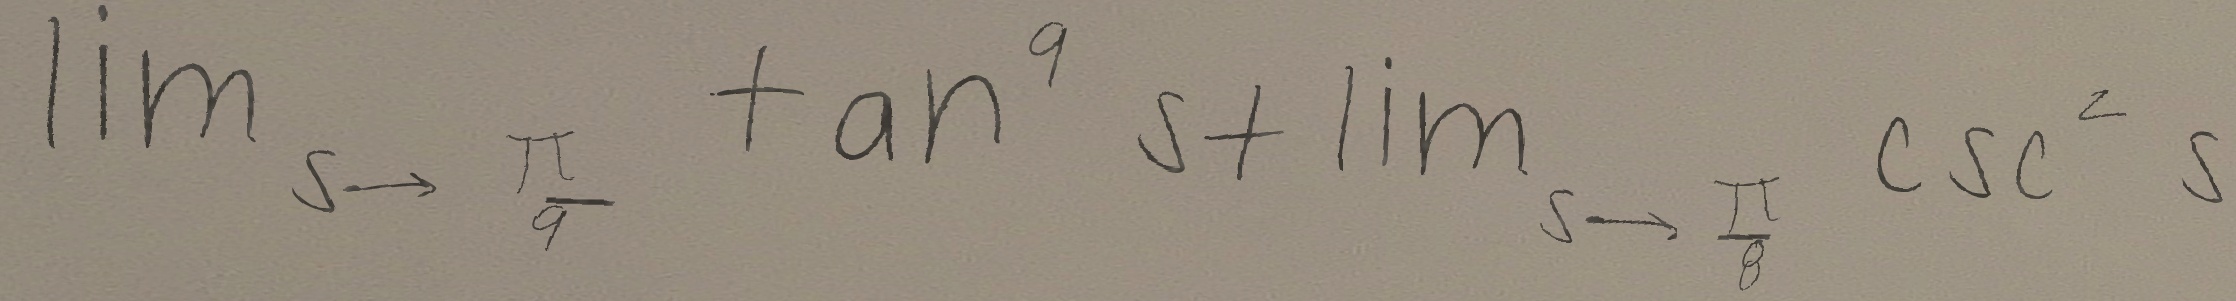 \lim_{s \to \frac{\pi}{9}} \tan^9 s + \lim_{s \to \frac{\pi}{8}} \csc^2 s